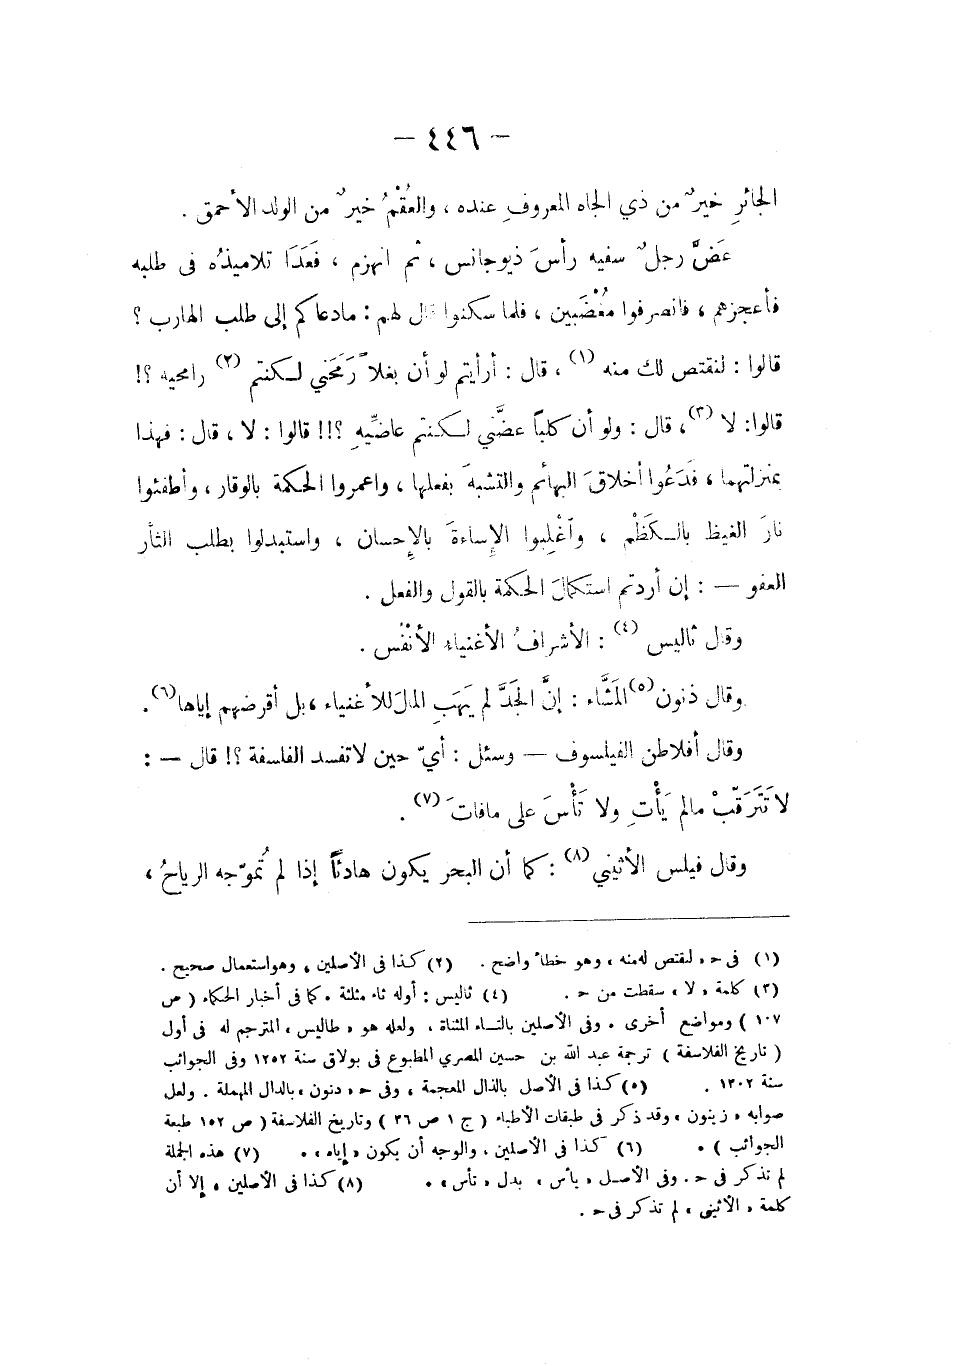 — ٤٤٦ —
الجائرِ خيرٌ من ذي الجاه المعروفِ عنده ، والعُقْمُ خيرٌ من الولد الأحمق .
عَضَّ رجلٌ سفيه رأسَ ذيوجانس ، ثم انهزم ، فَعَدَا تلاميذُه فى طلبه
فأعجزهم ، فانصرفوا مُغْضَبين ، فلما سكنوا قال لهم : مادعاكم إلى طلب الهارب ؟
قالوا : لنقتص لك منه (١) ، قال : أرأيتم لو أن بغلاً رَمَحَني لكنتم (٢) رامحيه ؟!
قالوا: لا (٣)، قال : ولو أن كلباً عضَّني لكنتم عاضِّيهِ ؟!! قالوا : لا ، قال : فهذا
بمنزلتهما ، فَدَعُوا أخلاقَ البهائم والتشبهَ بفعلها ، واعمروا الحكمة بالوقار ، وأطفئوا
نارَ الغيظ بالكَظْم ، وآغْلِبوا الإساءةَ بالإحسان ، واستبدلوا بطلب الثأر
العفو — : إن أردتم استكمالَ الحكمة بالقول والفعل .
وقال ثاليس (٤) : الأشرافُ الأغنياء الأنْفُس .
وقال ذنون (٥) المَشَّاء : إنَّ الجَدَّ لم يَهَبِ المالَ للأغنياء ، بل أقرضهم إياها (٦) .
وقال أفلاطن الفيلسوف — وسئل : أيّ حين لاتفسد الفلسفة ؟! قال — :
لاتَتَرَقّبْ مالم يَأْتِ ولا تَأْسَ على مافاتَ (٧) .
وقال فيلس الأثيني (٨) : كما أن البحر يكون هادئاً إذا لم تُموّجه الرياحُ ،
(١) فى ح « لنقتص له منه » وهو خطأ واضح . (٢) كذا فى الأصلين ، وهو استعمال صحيح .
(٣) كلمة « لا » سقطت من ح . (٤) ثاليس : أوله ثاء مثلثة . كما فى أخبار الحكماء ( ص
١٠٧ ) ومواضع أخرى . وفى الأصلين بالتاء المثناة ، ولعله هو « طاليس » المترجم له فى أول
( تاريخ الفلاسفة ) ترجمة عبد الله بن حسين المصري المطبوع فى بولاق سنة ١٢٥٢ وفى الجوائب
سنة ١٣٠٢ . (٥) كذا فى الأصل بالذال المعجمة ، وفى ح « دنون » بالدال المهملة . ولعل
صوابه « زينون » وقد ذكر فى طبقات الأطباء ( ج ١ ص ٣٦ ) وتاريخ الفلاسفة ( ص ١٥٢ طبعة
الجوائب ) . (٦) كذا فى الأصلين ، والوجه أن يكون « إياه » . (٧) هذه الجملة
لم تذكر فى ح . وفى الأصل « يأس » بدل « تأس » . (٨) كذا فى الأصلين ، إلا أن
كلمة « الأثينى » لم تذكر فى ح .